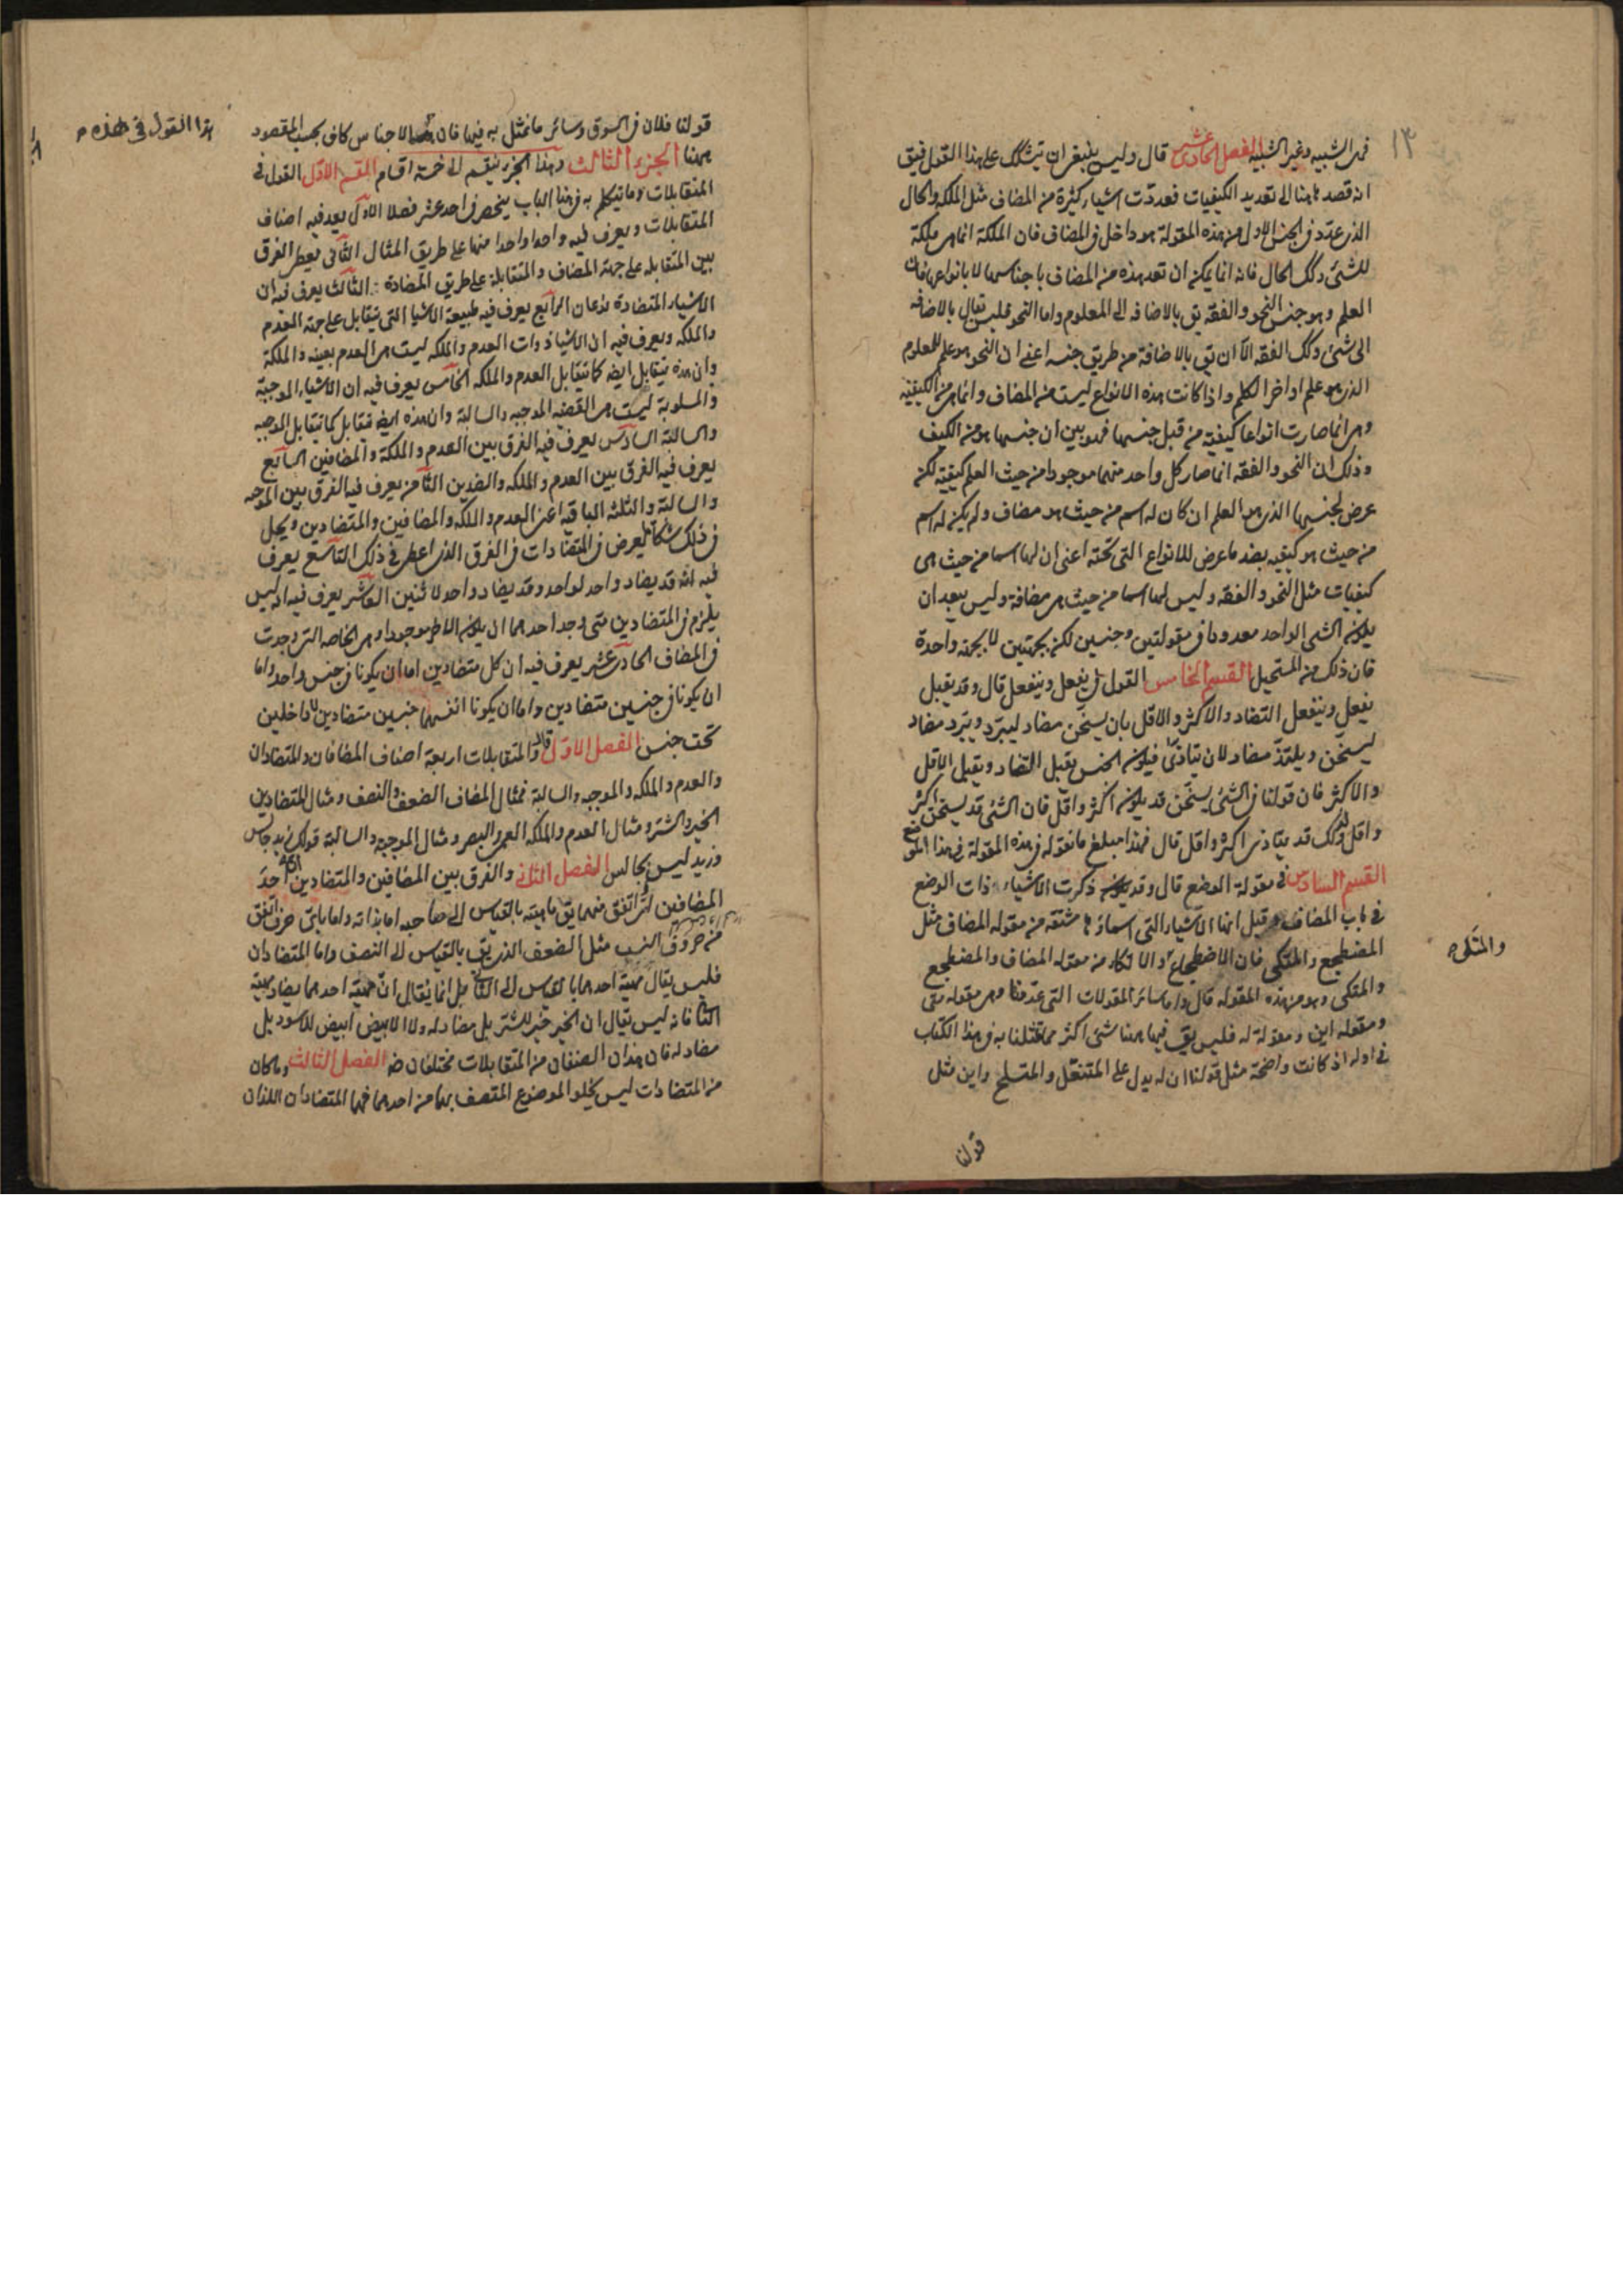 ١٣
فهى الشبيه وغير الشبيه الفصل الحادى عشر قال وليس ينبغى ان يتشكك على هذا القول فيق
انه قصد هاهنا الى تعديد الكيفيات فعددت اشياء كثيرة من المضاف مثل الملكه والحال
الذى عدد فى الجنس الاول من هذه المقولة هو داخل فى المضاف فان الملكة انما هى ملكة
للشئ وكك الحال فانه انما يمكن ان تعد هذه من المضاف باجناسها لا بانواعها فان
العلم وهو جنس النحو والفقه يق بالاضافه الى المعلوم واما النحو فليس يقال بالاضافه
الى شئ وكك الفقه الا ان يق بالاضافة من طريق جنسه اعنى ان النحو هو علم للمعلوم
الذى هو علم اواخر الكلم واذا كانت هذه الانواع ليست من المضاف وانما هى من الكيفية
وهى انما صارت انواعا كيفية من قبل جنسها فهو بين ان جنسها هو من الكيف
وذلك ان النحو والفقه انما صار كل واحد منهما موجودا من حيث العلم كيفية لكنه
عرض لجنسها الذى هو العلم ان كان له اسم من حيث هو مضاف ولم يكن له اسم
من حيث هو كيفيه بضد ما عرض للانواع التى تحته اعنى ان لها اسما من حيث هى
كيفيات مثل النحو والفقه وليس لها اسما من حيث هى مضافة وليس يبعد ان
يكون الشى الواحد معدودا فى مقولتين وجنسين لكن بجهتين لا بجهة واحدة
فان ذلك من المستحيل القسم الخامس القول فى يفعل وينفعل قال وقد يقبل
يفعل وينفعل التضاد والاكثر والاقل بان يسخّن مضاد ليبرّد ويبّرد مضاد
ليسخّن ويلتذ مضاد لان يتاذى فيكون الجنس يقبل التضاد ويقبل الاقل
والاكثر فان قولنا فى الشئ يسخّن قد يكون اكثر واقل فان الشئ قد يسخن اكثر
واقل وكك قد يتاذى اكثر واقل قال فهذا مبلغ ما نقوله فى هذه المقولة فى هذا الموضع
القسم السادس فى مقولة الوضع قال وقد يكون ذكرت الاشياء ذات الوضع
فى باب المضاف وقيل انها الاشياء التى اسماؤها مشتقه من مقوله المضاف مثل
المضطجع والمتكى فان الاضطجاع والاتكاء من مقوله المضاف والمضطجع
والمتكى
والمتكى وهو من هذه المقوله قال واما سائر المقولات التى عددنا وهى مقوله متى
ومقوله اين ومقولة له فليس يق فيها هاهنا شئ اكثر مما تمثلنا به فى هذا الكتاب
فى اوله اذ كانت واضحة مثل قولنا ان له يدل على المتنعّل والمتسلح واين مثل
قولنا
قولنا فلان فى السوق وسائر ما تمثل به فيها فان هذه الاجناس كاف بحسب المقصود
هذا القول فى هذه
ههنا الجزء الثالث وهذا الجزء ينقسم الى خمسة اقسام القسم الاول القول فى
المتقابلات وما يتكلم به فى هذا الباب ينحصر فى احد عشر فصلا الاول يعد فيه اصناف
المتقابلات ويعرف فيه واحدا واحدا منها على طريق المثال الثانى يعطى الفرق
بين المتقابله على جهة المضاف والمتقابلة على طريق المضادة الثالث يعرف فيه ان
الاشياء المتضادة نوعان الرابع يعرف فيه طبيعة الاشيا التى تتقابل على جهة العدم
والملكه ويعرف فيه ان الاشيا ذوات العدم والملكه ليست هى العدم بعينه والملكة
وان هذه تتقابل ايضا كما تتقابل العدم والملكه الخامس يعرف فيه ان الاشياء الموجبة
والمسلوبة ليست هى القضيه الموجبه والسالبة وان هذه ايضا تتقابل كما تتقابل الموجبه
والسالبة السادس يعرف فيه الفرق بين العدم والملكة والمضافين السابع
يعرف فيه الفرق بين العدم والملكه والضدين الثامن يعرف فيه الفرق بين الموجبه
والسالبة والثلثه الباقيه اعنى العدم والملكه والمضافين والمتضادين ويحل
فى ذلك شكا يعرض فى المتضادات فى الفرق الذى اعطى فى ذلك التاسع يعرف
فيه انه قد يضاد واحد لواحد وقد يضاد واحد لاثنين العاشر يعرف فيه انه ليس
يلزم فى المتضادين متى وجد احدهما ان يكون الاخر موجودا وهى الخاصه التى وجدت
فى المضاف الحادى عشر يعرف فيه ان كل متضادين اما ان يكونا فى جنس واحد واما
ان يكونا فى جنسين متضادين واما ان يكونا انفسهما جنسين متضادين لا داخلين
تحت جنس الفصل الاول قال والمتقابلات اربعة اصناف المضافان والمتضادان
والعدم والملكه والموجبه والسالبة فمثال المضاف الضعف والنصف ومثال المتضادين
الخير والشر ومثال العدم والملكه العمى والبصر ومثال الموجبه والسالبة قولك زيد جالس
وزيد ليس بجالس الفصل الثانى والفرق بين المضافين والمتضادين ان احد
المضافين اىّ اتفق منهما يق ماهيته بالقياس الى صاحبه اما بذاته واما باى حرف اتفق
من حروف النسب مثل الضعف الذى يق بالقياس الى النصف واما المتضادان
فليس يقال مهية احدهما بالقياس الى الثانى بل انما يقال ان مهية احدهما يضاد مهية
الثانى فانه ليس يقال ان الخير خير للشر بل مضاد له ولا الابيض ابيض للاسود بل
مضاد له فان هذان الصنفان من المتقابلات مختلفان ضه الفصل الثالث وما كان
من المتضادات ليس يخلو الموضوع المتصف بهما من احدهما فهما المتضادان اللذان